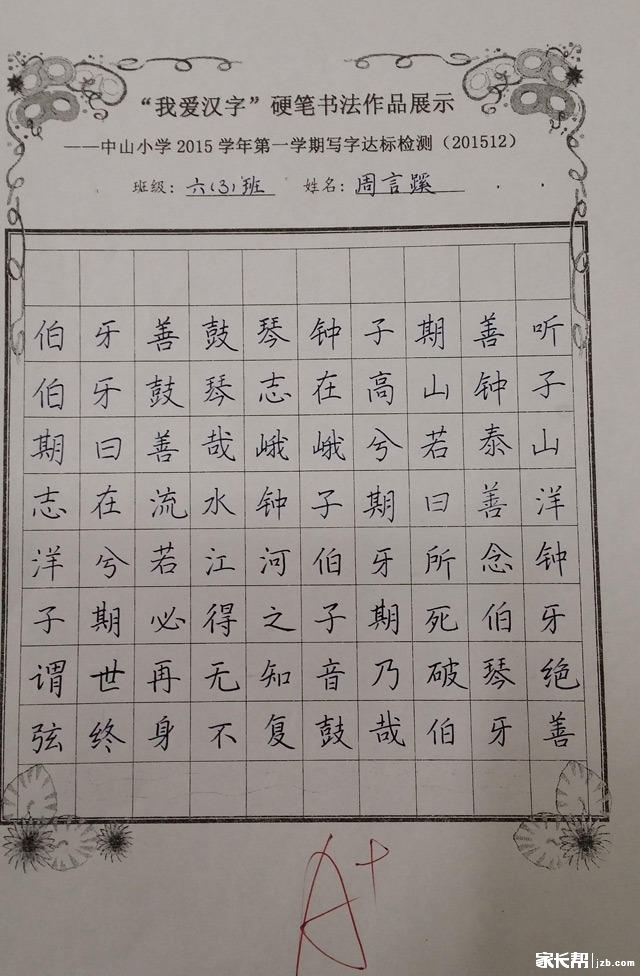 “我爱汉字”硬笔书法作品展示
——中山小学2015学年第一学期写字达标检测（201512）
班级：六(3)班 姓名：周言蹊
伯牙善鼓琴钟子期善听
伯牙鼓琴志在高山钟子
期曰善哉峨峨兮若泰山
志在流水钟子期曰善洋
洋兮若江河伯牙所念钟
子期必得之子期死伯牙
谓世再无知音乃破琴绝
弦终身不复鼓哉伯牙善
A+
家长帮 jzb.com